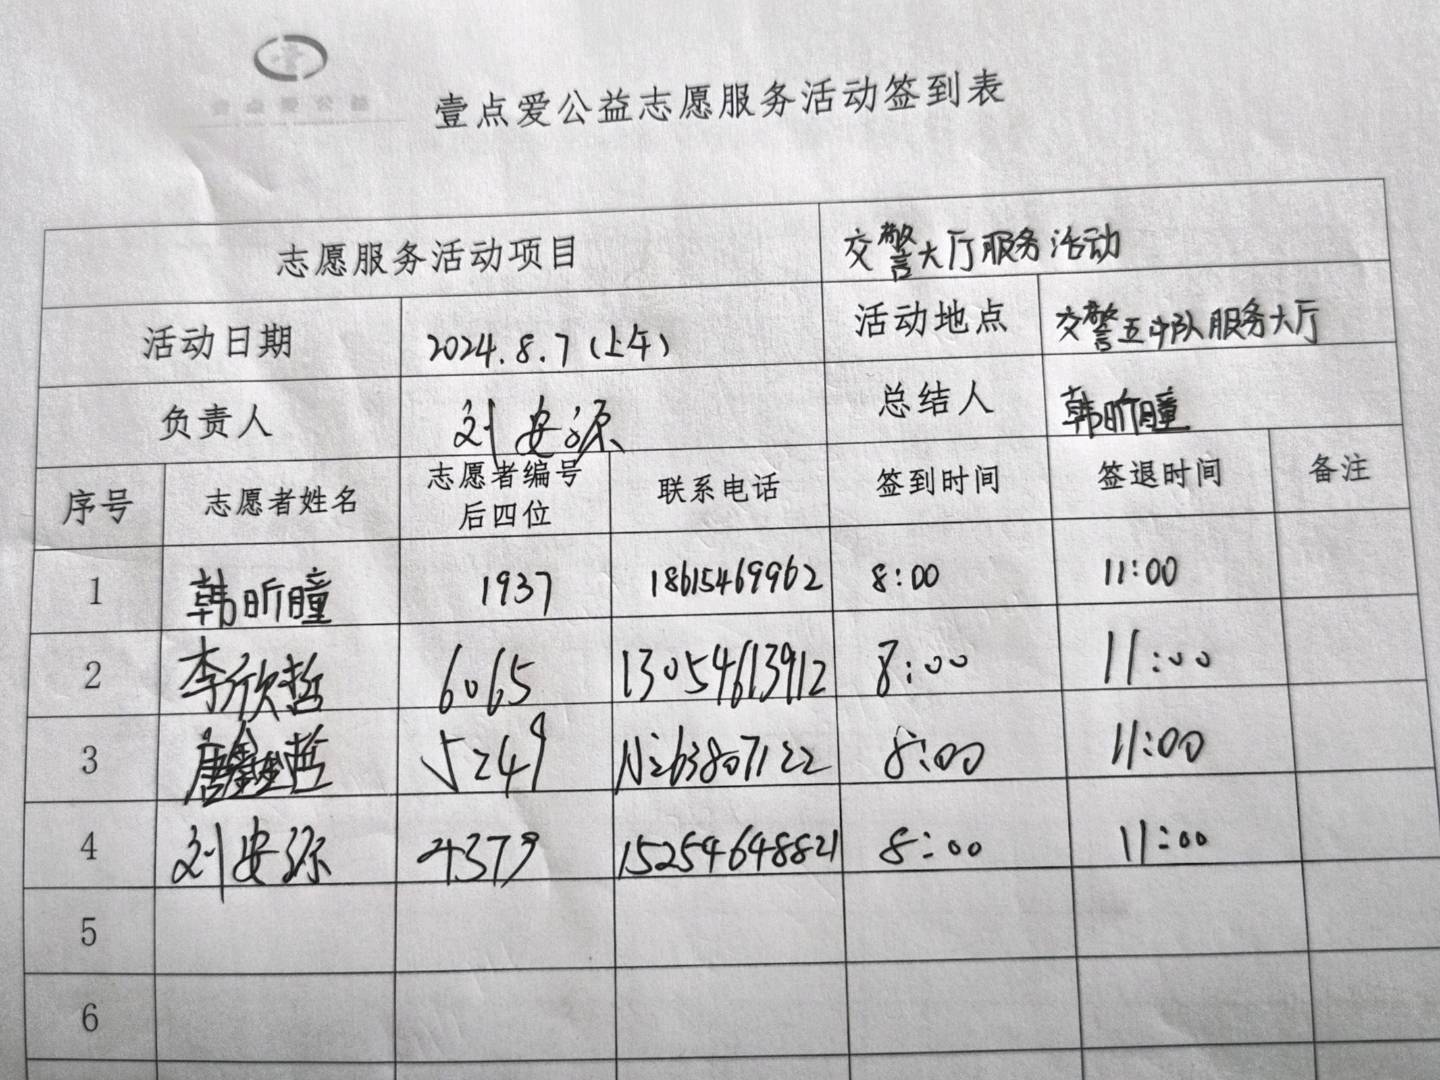 壹点爱公益志愿服务活动签到表
志愿服务活动项目 交警大厅服务活动
活动日期 2024.8.7(上午) 活动地点 交警五中队服务大厅
负责人 刘安源 总结人 韩昕瞳
序号 志愿者姓名 志愿者编号后四位 联系电话 签到时间 签退时间 备注
1 韩昕瞳 1937 18615469962 8:00 11:00
2 李欣哲 6065 13054613912 8:00 11:00
3 唐 哲 5249 8:00 11:00
4 刘安源 4379 15254648821 8:00 11:00
5
6